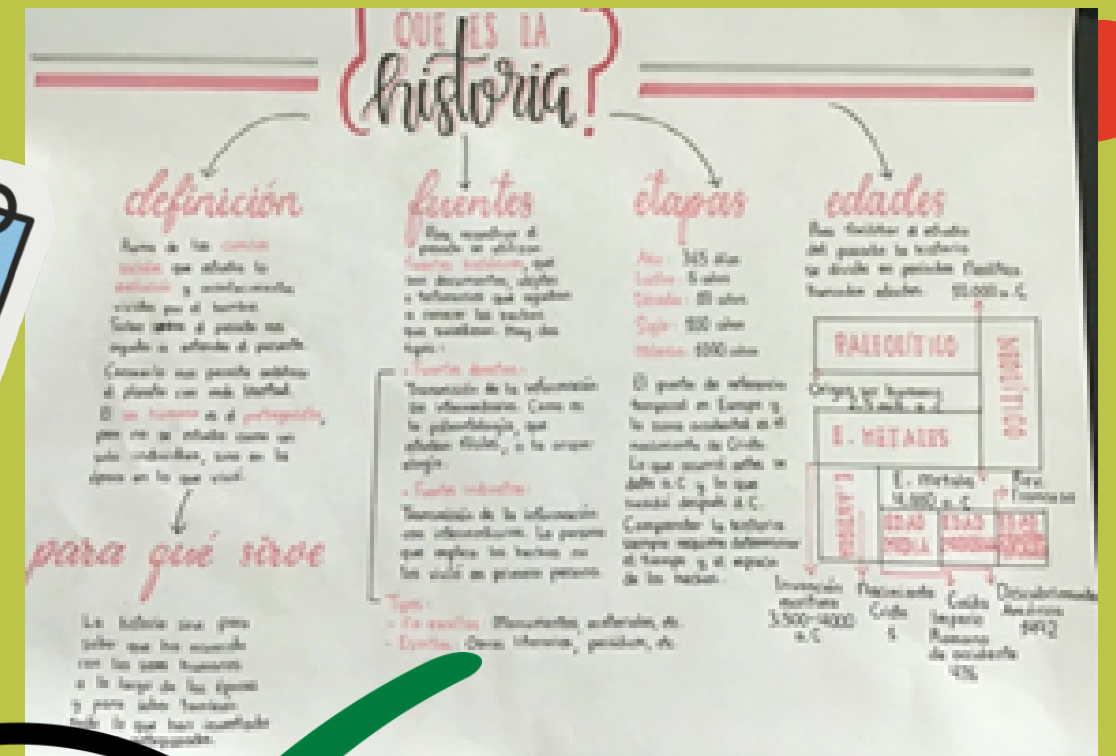 ¿QUE ES LA
historia?
definición
Rama de las ciencias
sociales que estudia la
evolución y acontecimientos
vividos por el hombre.
Saber sobre el pasado nos
ayuda a entender el presente.
Conocerlo nos permite
el planeta con más libertad.
El ser humano es el protagonista,
pero no se estudia como un
solo individuo, sino en la
época en la que vivió.
para qué sirve
La historia sirve para
saber que ha ocurrido
con los seres humanos
a lo largo de las épocas
y para saber también
todo lo que han
antepasados.
fuentes
Para reconstruir el
pasado se utilizan
fuentes históricas, que
son documentos, objetos
o testimonios que ayudan
a conocer los hechos
que sucedieron. Hay dos
tipos:
- Fuentes directas:
Transmisión de la información
sin intermediario. Como es
la paleontología, que
estudian fósiles, o la arqueo-
ología.
- Fuentes indirectas:
Transmisión de la información
con intermediarios. La persona
que explica los hechos no
los vivió en primera persona.
Tipos:
- No escritas: Monumentos, materiales, etc.
- Escritas: Obras literarias, periódicos, etc.
etapas
Año: 365 días
Lustro: 5 años
Década: 10 años
Siglo: 100 años
Milenio: 1000 años
El punto de referencia
temporal en Europa y
la zona occidental es el
nacimiento de Cristo.
Lo que ocurrió antes se
a.C. y lo que
sucedió después d.C.
Comprender la historia
siempre requiere determinar
el tiempo y el espacio
de los hechos.
edades
Para facilitar el estudio
del pasado la historia
se divide en periodos
llamados edades. 10.000 a.C
PALEOLÍTICO
NEOLÍTICO
Origen ser humano
a.C
E. METALES
E. Metales
4.000 a.C
Rev.
Francesa
E. ANTIGUA
EDAD
MEDIA
EDAD
MODERNA
EDAD
Invención
escritura
3.500-4000
a.C
Nacimiento
Cristo
Caída
Imperio
Romano
de occidente
476
Descubrimiento
América
1492